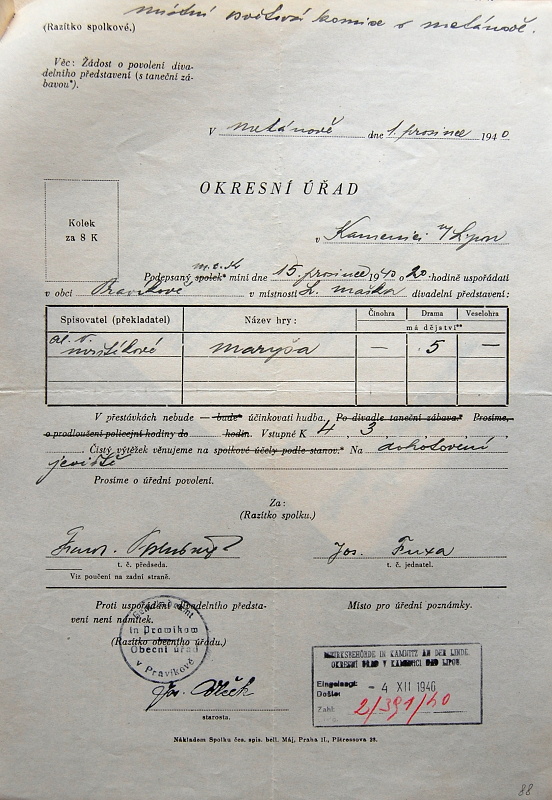 místní osvětová komise v Metánově.
(Razítko spolkové.)
Věc: Žádost o povolení diva-
delního představení (s taneční zá-
bavou*).
V Metánově dne 1. prosince 1940
OKRESNÍ ÚŘAD
Kolek
za 8 K
v Kamenici n/Lipou
m.o.k.
Podepsaný spolek* míní dne 15. prosince 1940 o 20 hodině uspořádati
v obci Pravíkově v místnosti L. Maška divadelní představení:
Spisovatel (překladatel) Název hry: Činohra Drama Veselohra
má dějství**
al. v.
Mrštíkové Maryša — 5 —
V přestávkách nebude — bude* účinkovati hudba. Po divadle taneční zábava.* Prosíme,
o prodloužení policejní hodiny do hodin. Vstupné K 4, 3
Čistý výtěžek věnujeme na spolkové účely podle stanov.* Na dohotovení
jeviště
Prosíme o úřední povolení.
Za:
(Razítko spolku.)
Frant. Jos. Fuxa
t. č. předseda. t. č. jednatel.
Viz poučení na zadní straně.
Proti uspořádání divadelního předsta-
vení není námitek.
Místo pro úřední poznámky.
(Razítko obecního úřadu.)
Gemeindeamt
in Prawikow
Obecní úřad
v Pravíkově
Jos. Vlček
starosta.
BEZIRKSBEHÖRDE IN KAMNITZ AN DER LINDE.
OKRESNÍ ÚŘAD V KAMENICI NAD LIPOU.
Eingelangt:
Došlo: - 4 XII 1940
Zahl: 2/391/40
Nákladem Spolku čes. spis. bell. Máj, Praha II., Pštrossova 23.
88